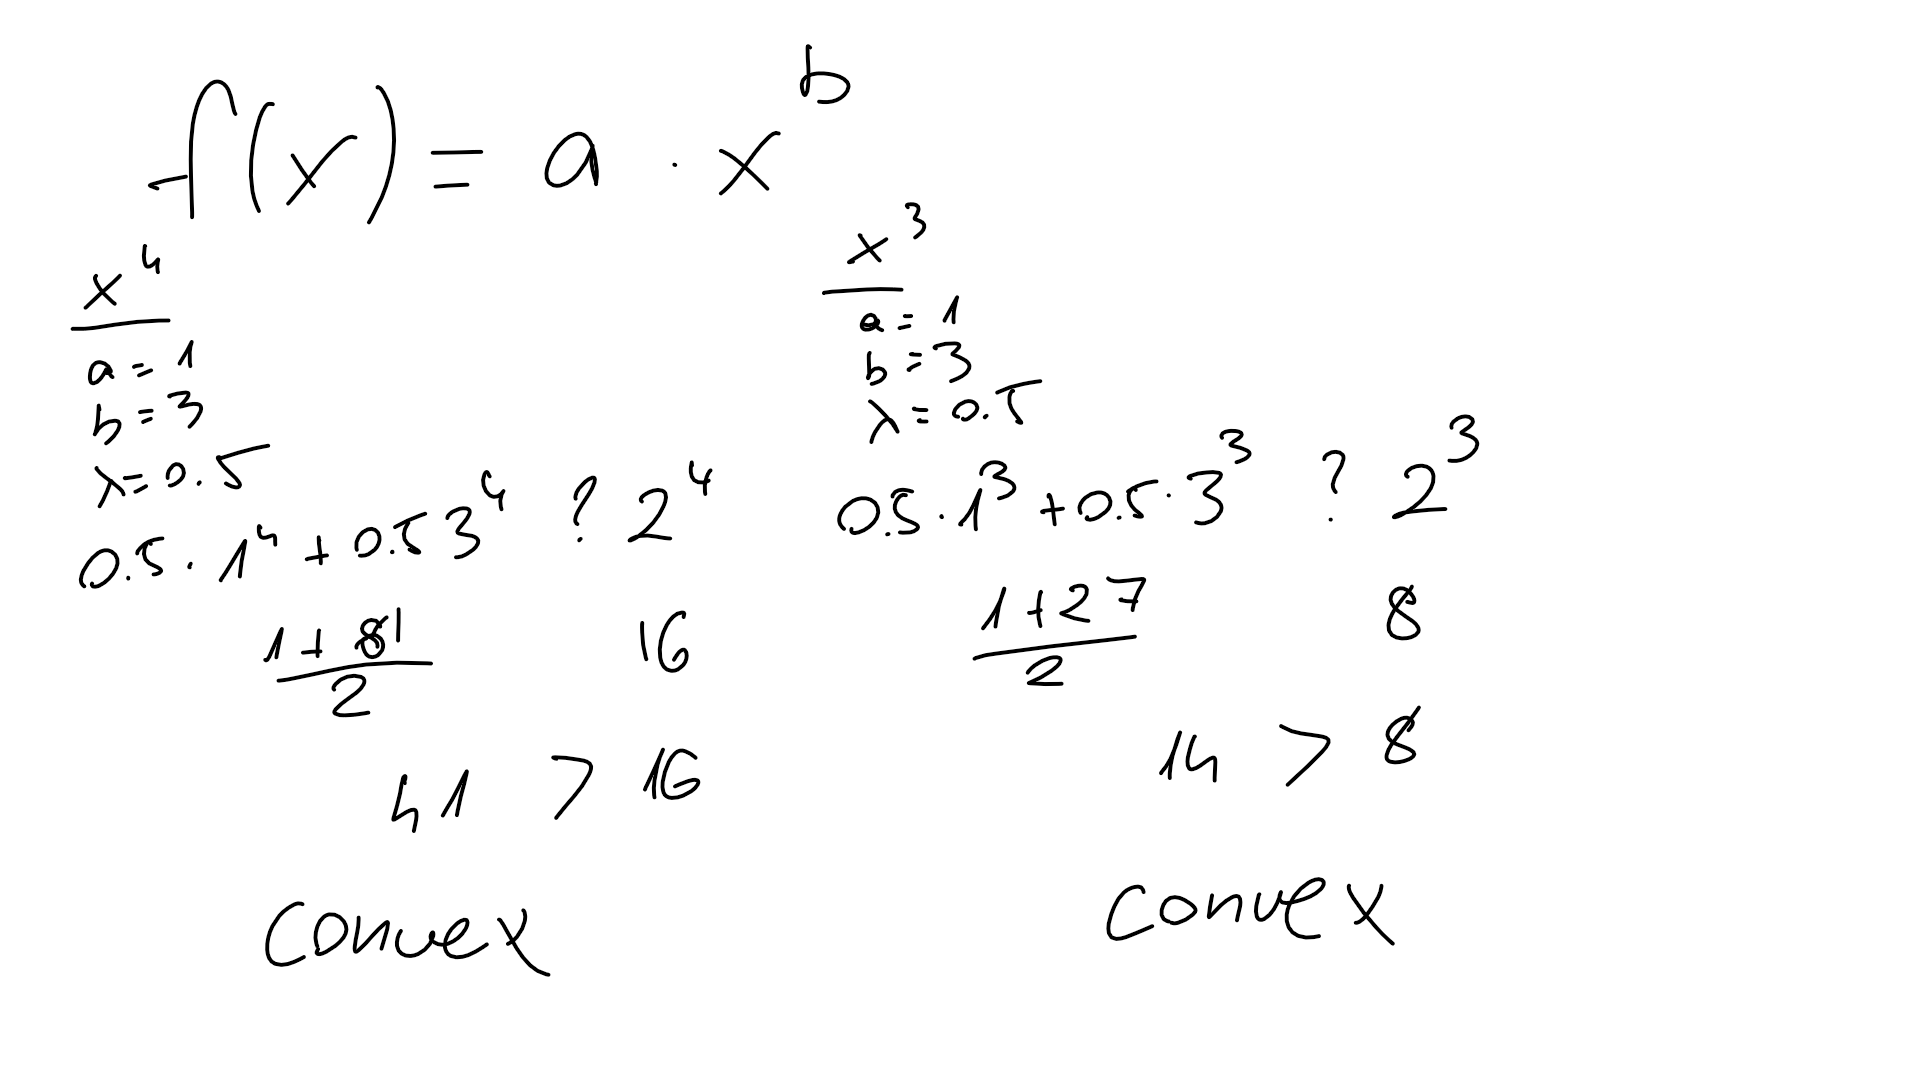 f(x) = a · x^b
x^4
a = 1
b = 3
λ = 0.5
0.5 · 1^4 + 0.5 3^4 ? 2^4
1 + 81
2
16
41 > 16
convex
x^3
a = 1
b = 3
λ = 0.5
0.5 · 1^3 + 0.5 · 3^3 ? 2^3
1 + 27
2
8
14 > 8
convex